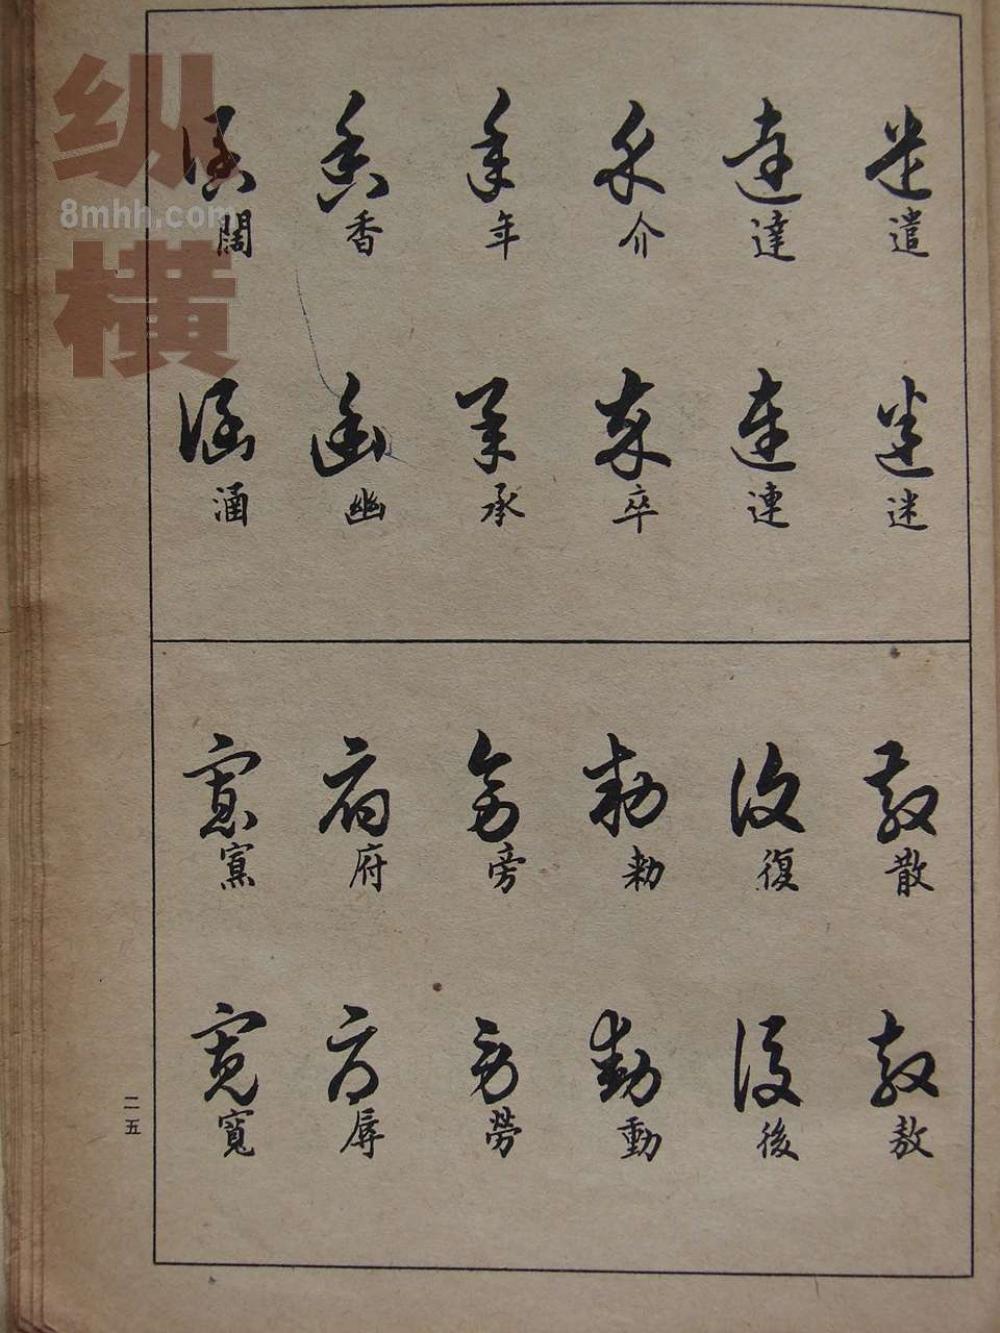 遣 達 介 年 香 闊
迷 連 卒 承 幽 涵
散 復 勅 旁 府 寡
敖 後 動 勞 辱 寬
二五
纵横
8mhh.com